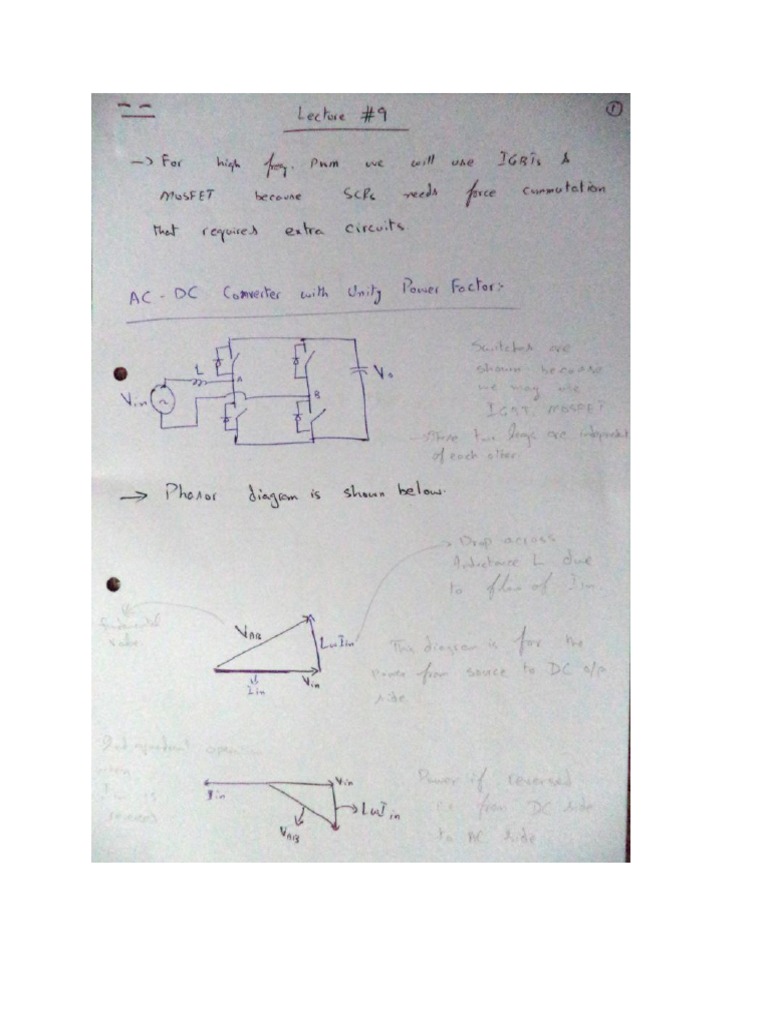 Lecture #9
1
→ For high freq. PWM we will use IGBTs &
MOSFET because SCRs needs force commutation
that requires extra circuits
AC - DC Converter with Unity Power Factor:-
Switches are
shown because
we may use
IGBT, MOSFET
L
A
B
Vin
Vo
These two legs are independent
of each other.
→ Phasor diagram is shown below.
Drop across
Inductance L due
to flow of Iin.
fundamental
value
VAB
LωIin
Iin
Vin
This diagram is for the
power from source to DC o/p
side
when
Iin is
reversed
Iin
Vin
LωIin
VAB
Power if reversed
i.e from DC side
to AC side